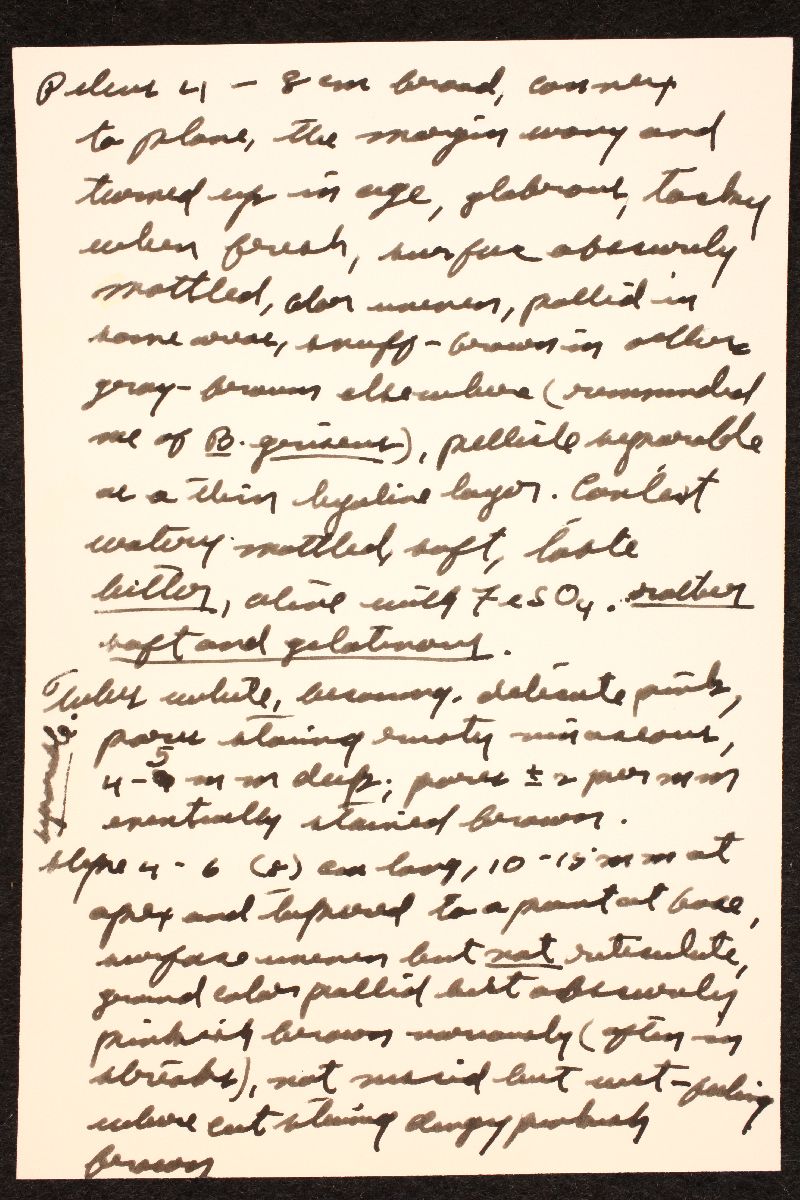 Pileus 4 - 8 cm broad, convex
to plane, the margin wavy and
turned up in age, glabrous, tacky
when fresh, surface obscurely
mottled, color uneven, pallid in
some areas, snuff-brown in others
gray-brown elsewhere (reminded
me of B. griseus), pellicle separable
as a thin hyaline layer. Context
watery mottled, soft, taste
bitter, olive with FeSO4. rather
soft and gelatinous.
Tubes white, becoming delicate pink,
pores staining rusty vinaceous,
4-5 mm deep; pores ± 2 per mm
eventually stained brown.
separable
stipe 4 - 6 (8) cm long, 10-15 mm at
apex and tapered to a point at base,
surface uneven but not reticulate,
ground color pallid but obscurely
pinkish brown variously (often in
streaks), not viscid but wet-feeling
where cut staining dingy pinkish
brown